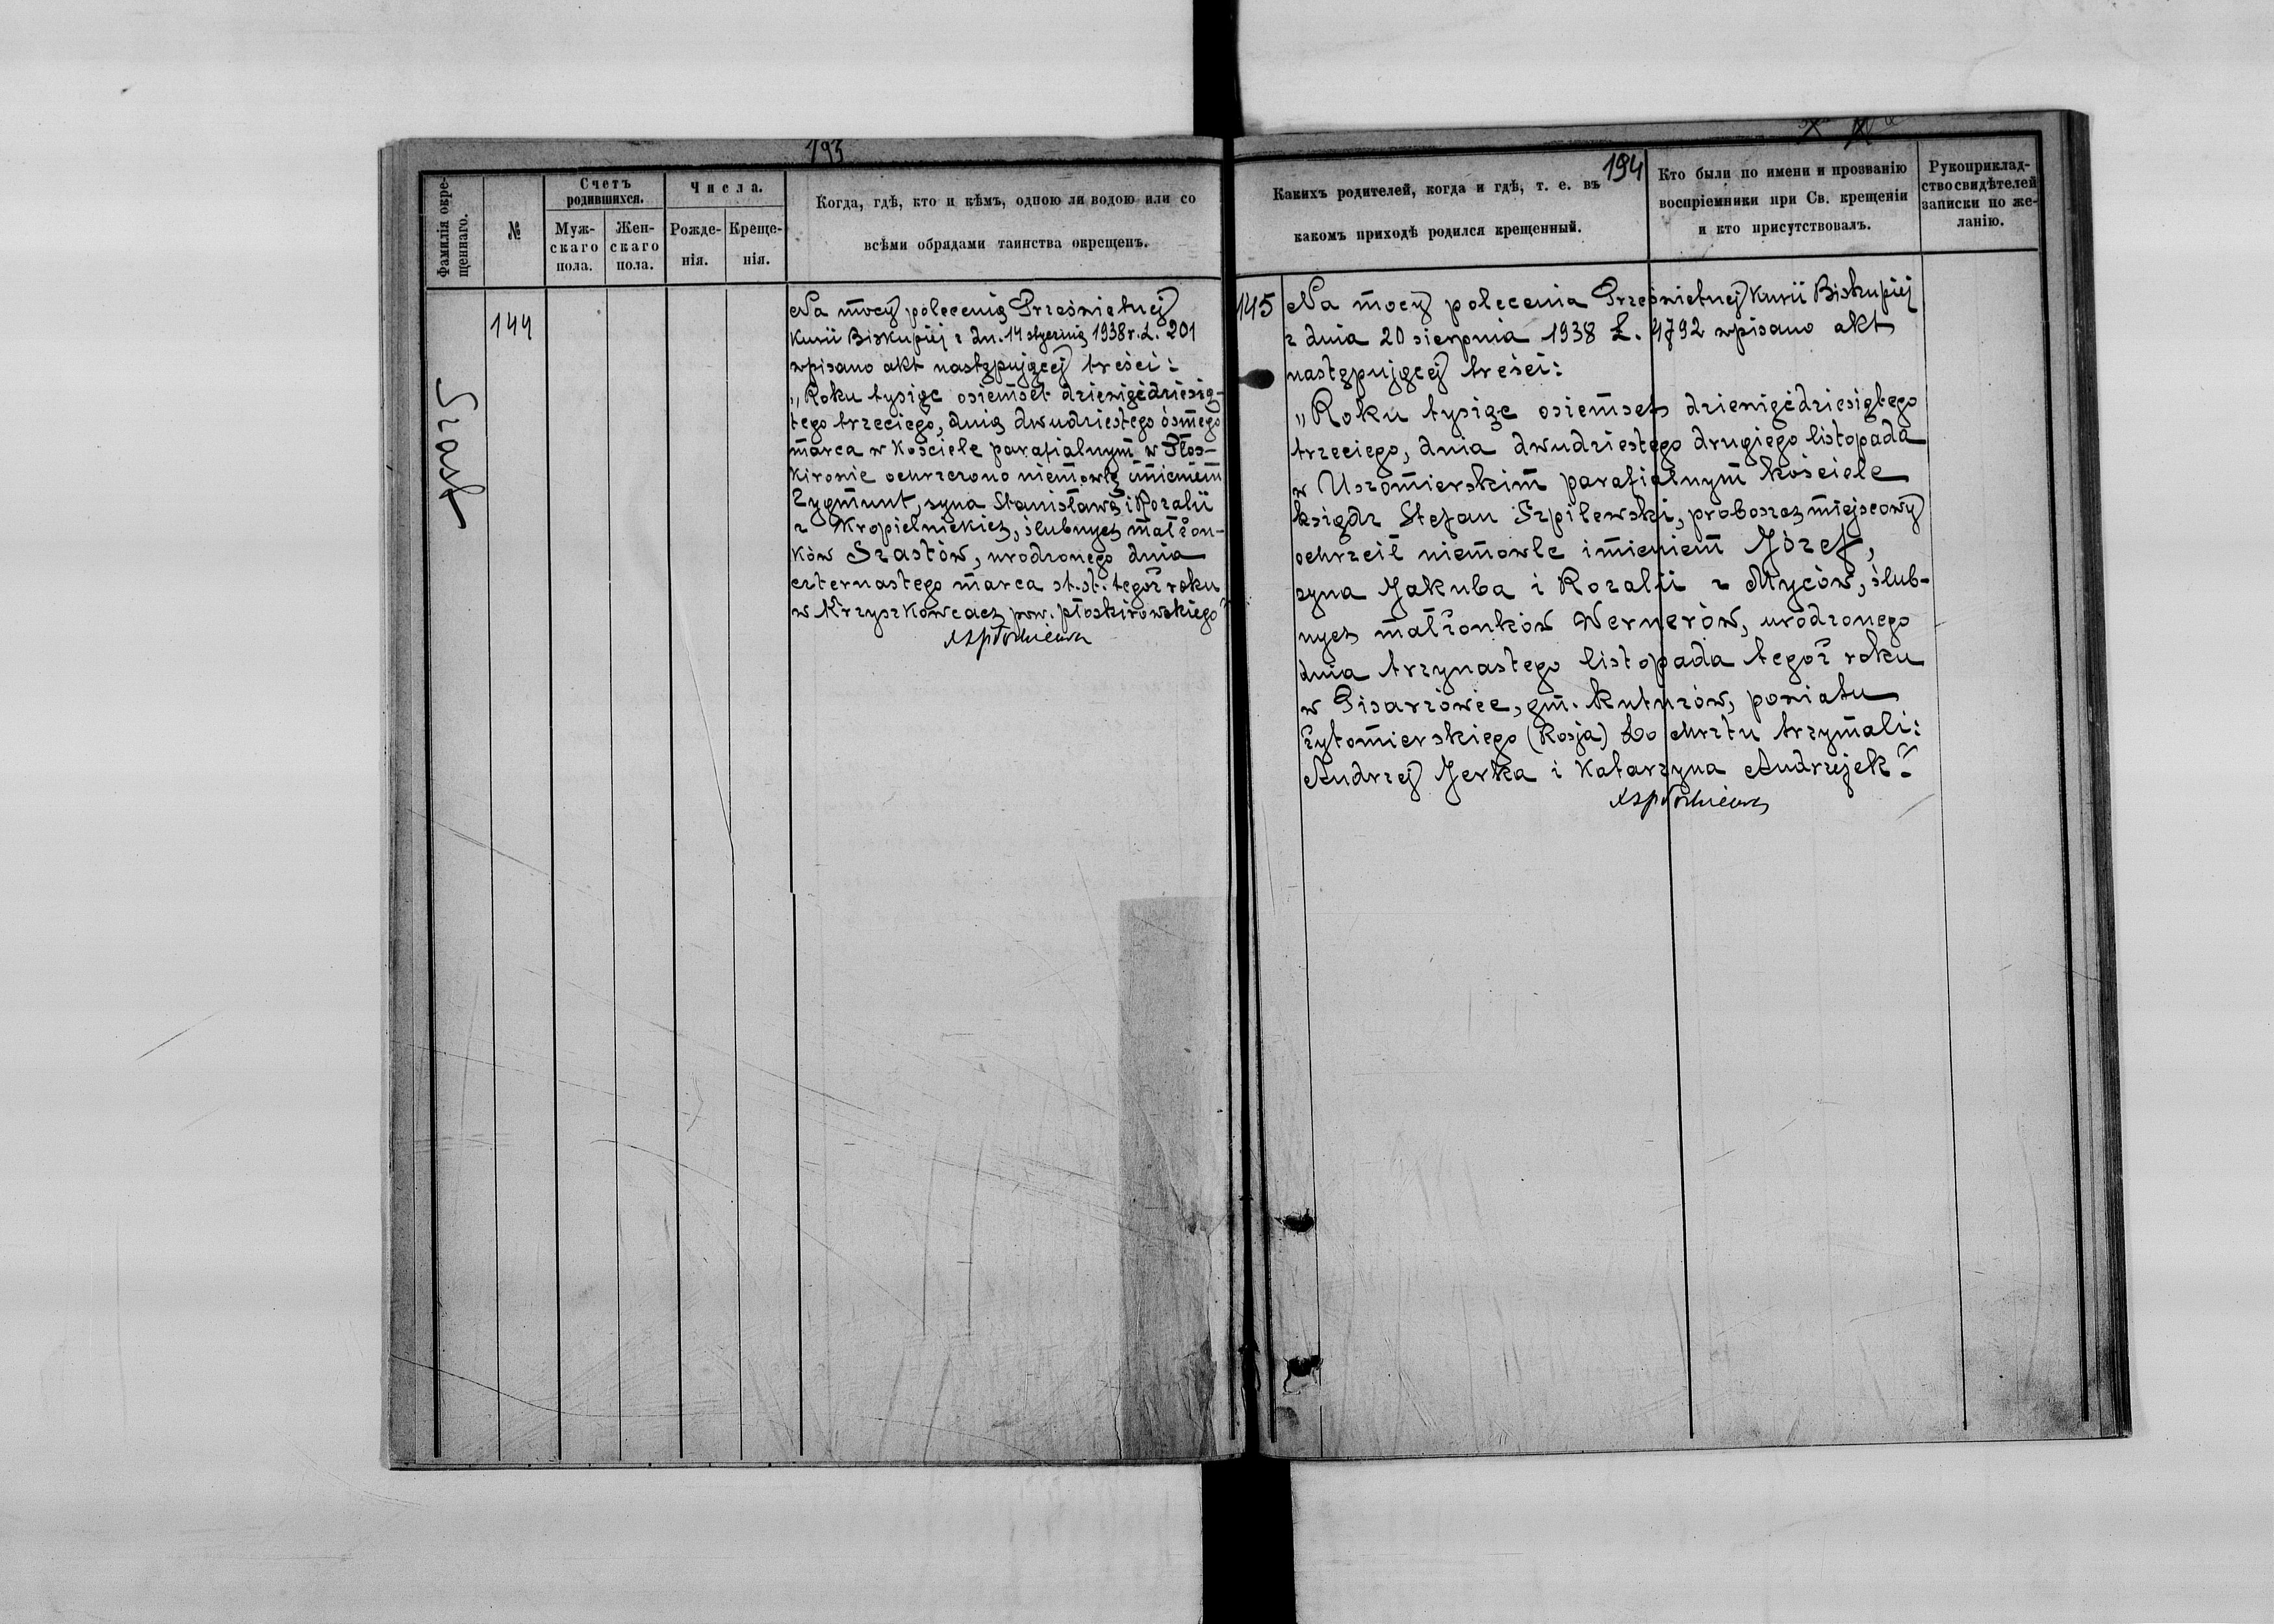 193
Фамилія окре-
щеннаго.
№
Счетъ
родившихся.
Муж-
скаго
пола.
Жен-
скаго
пола.
Числа.
Рожде-
нія.
Креще-
нія.
Когда, гдѣ, кто и кѣмъ, одною ли водою или со
всѣми обрядами таинства окрещенъ.
Szast
144
Na mocy polecenia Prześwietnej
Kurii Biskupiej z dn. 14 stycznia 1938 r. L. 201
wpisano akt następującej treści:
„Roku tysiąc osiemset dziewięćdziesią-
tego trzeciego, dnia dwudziestego ósmego
marca w kościele parafialnym w Płos-
kirowie ochrzczono niemowlę imieniem
Zygmunt, syna Stanisława i Rozalii
z Kropielnickich, ślubnych małżon-
ków Szastów, urodzonego dnia
czternastego marca st. st. tegoż roku
w Krzyszkowcach pow. płoskirowskiego"
194
Какихъ родителей, когда и гдѣ, т. е. въ
какомъ приходѣ родился крещенный.
Кто были по имени и прозванію
воспріемники при Св. крещеніи
и кто присутствовалъ.
Рукоприклад-
ство свидѣтелей
записки по же-
ланію.
145
Na mocy polecenia Prześwietnej Kurii Biskupiej
z dnia 20 sierpnia 1938 L. 4792 wpisano akt
następującej treści:
„Roku tysiąc osiemset dziewięćdziesiątego
trzeciego, dnia dwudziestego drugiego listopada
w Uszomierskim parafialnym kościele
ksiądz Stefan Szpilewski, proboszcz miejscowy
ochrzcił niemowlę imieniem Józef,
syna Jakuba i Rozalii z Myców, ślub-
nych małżonków Wernerów, urodzonego
dnia trzynastego listopada tegoż roku
w Pisarzówce, gm. Kutuzów, powiatu
żytomierskiego (Rosja) Do chrztu trzymali:
Andrzej Jerka i Katarzyna Andrzejek"